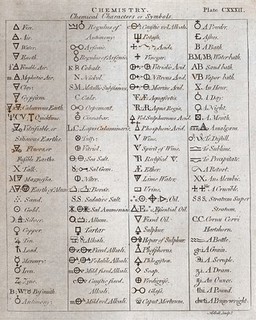 CHEMISTRY.
Plate CXXXII.
Chemical Characters or Symbols.
Fire.
Air.
Water.
Earth.
Fixable Air.
Mephitic Air.
Clay.
Gypsum.
Calcareous Earth.
Quicklime.
Vitrifiable, or
Siliceous Earths.
Fluors, or
Fusible Earths.
Talk.
Magnesia.
Earth of Alum.
Sand.
Gold.
Silver.
Copper.
Tin.
Lead.
Mercury.
Iron.
Zinc.
Bismuth.
Antimony.
Regulus of
Antimony.
Arsenic.
Regulus of Arsenic.
Cobalt.
Nickel.
Metallic Calces.
Orpiment.
Cinnabar.
Lapis Calaminaris.
Tutty.
Vitriol.
Sea Salt.
Sal Gem.
Nitre.
Borax.
Sedative Salt.
Sal Ammoniac.
Alum.
Tartar.
Alkali.
Fixed Alkali.
Volatile Alkali.
Mild fixed Alkali.
Mild volat. Alkali.
Caustic fixed Alkali.
Caustic vol. Alkali.
Potash.
Acids.
Vitriolic Acid.
Nitrous Acid.
Marine Acid.
Aqua fortis.
Aqua Regia.
Phosphoric Acid.
Wine.
Spirit of Wine.
Rectified V.
Ether.
Lime Water.
Urine.
Oil.
Essential Oil.
Fixed Oil.
Sulphur.
Hepar of Sulphur.
Phosphorus.
Soap.
Verdigrise.
Glass.
Caput Mortuum.
A Powder.
Ashes.
A Bath.
Water bath.
Sand bath.
Vapor bath.
An Hour.
A Day.
A Night.
A Month.
Amalgam.
To Distil.
To Sublime.
To Precipitate.
A Retort.
An Alembic.
A Crucible.
SSS. Stratum Super
Stratum.
C.C. Cornu Cervi
Hartshorn.
A Bottle.
A Grain.
A Scruple.
A Dram.
An Ounce.
A Pound.
A Pennyweight.